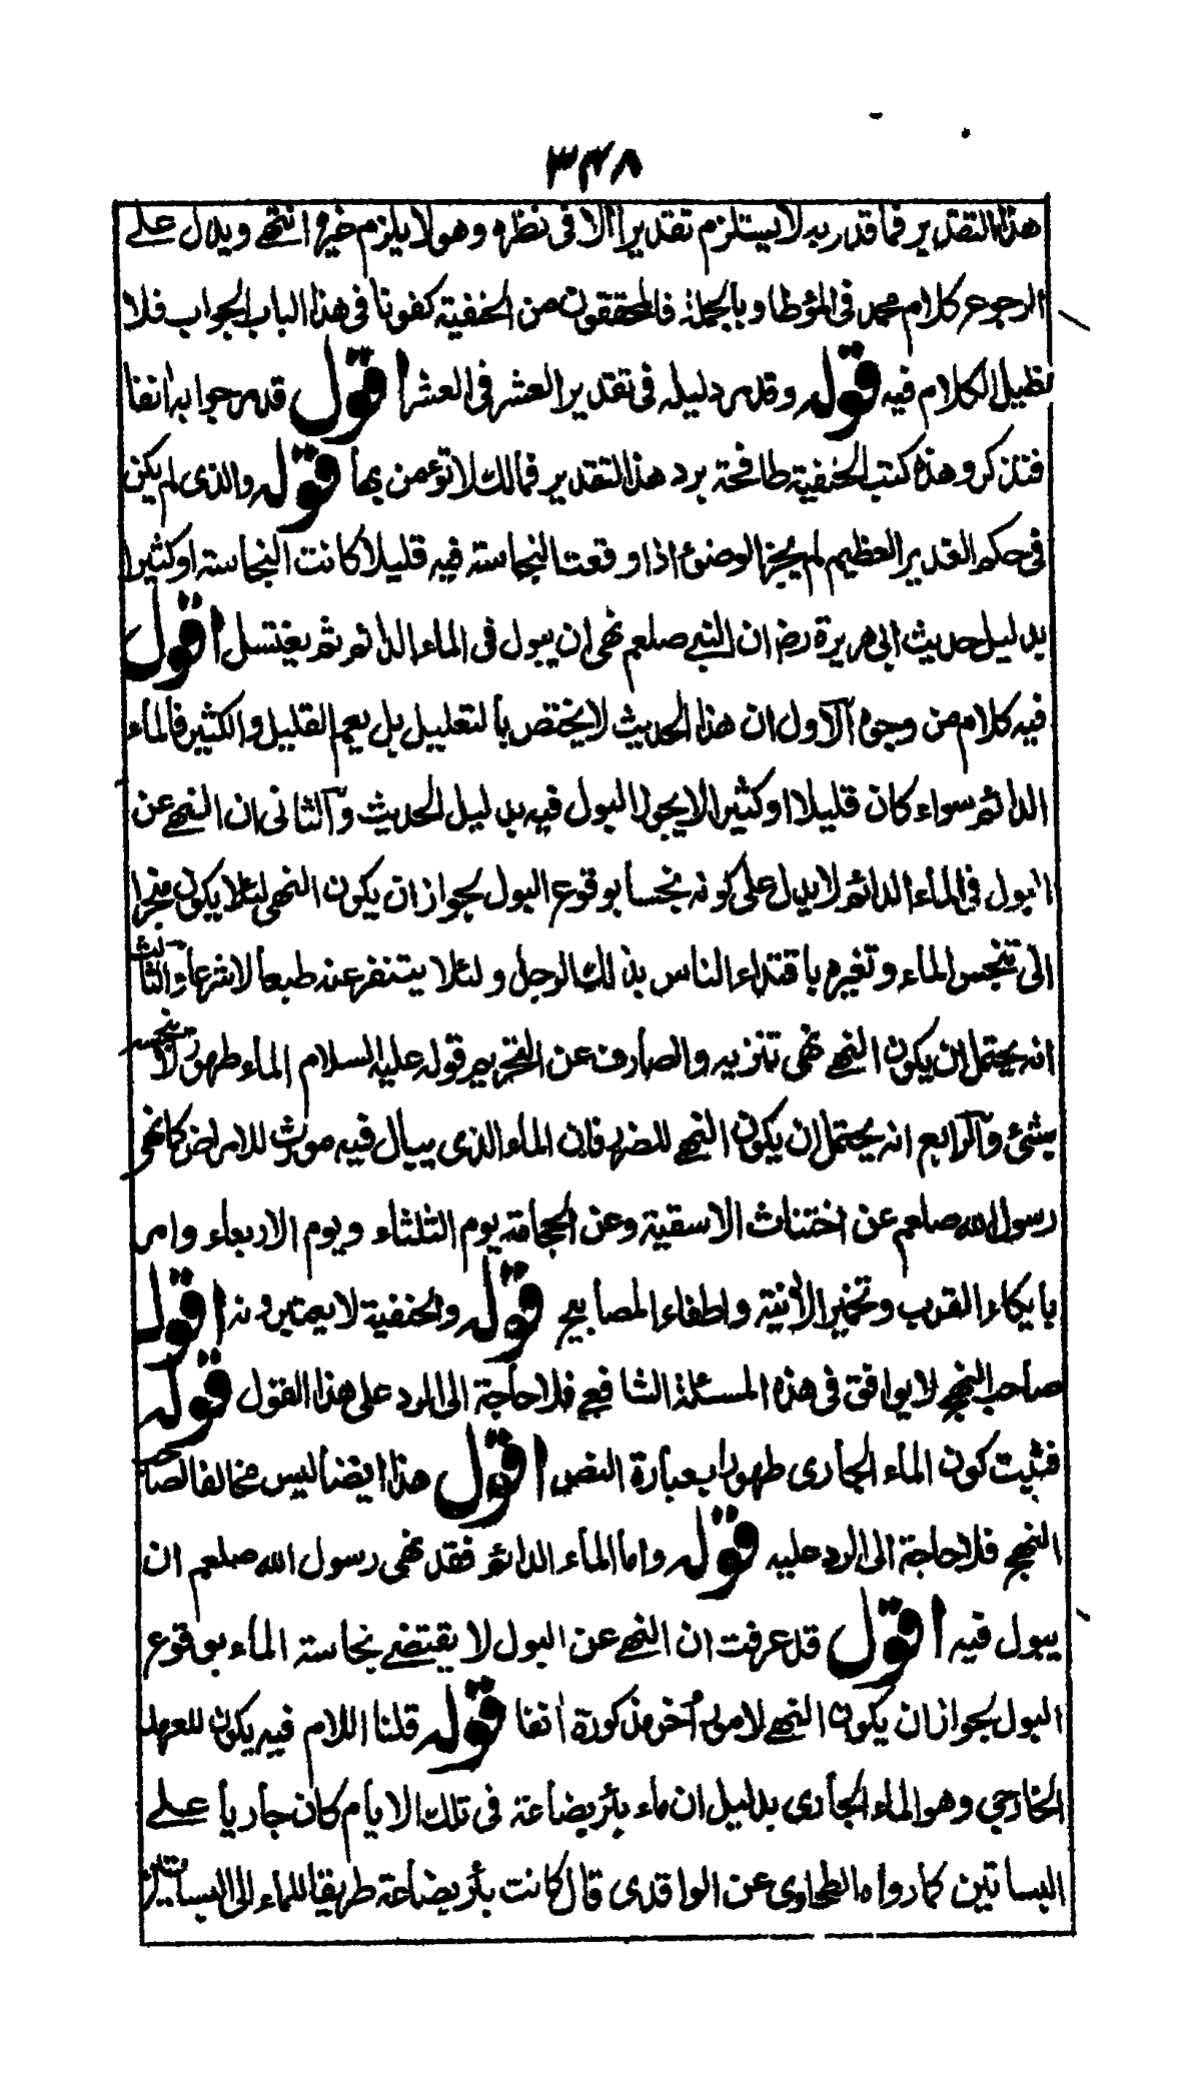 ۳۴۸
هذا التقدير فما قدر به لا يستلزم تقديرا الا فى نظره وهو لا يلزم غيره انتهى ويدل على
الرجوع كلام محمد فى المؤطا وبالجملة فالمحققون من الحنفية كفونا فى هذا الباب الجواب فلا
نطيل الكلام فيه قوله وقد مر دليله فى تقدير العشر فى العشر اقول قد مر جوابه انفا
فتذكر وهذه كتب الحنفية طافحة برد هذا التقدير فمالك لا تؤمن بها قوله والذى لم يكن
فى حكم الغدير العظيم لم يجز الوضوء اذا وقعت النجاسة فيه قليلا كانت النجاسة او كثيرا
بدليل حديث ابى هريرة رض ان النبى صلعم نهى ان يبول فى الماء الدائم ثم يغتسل اقول
فيه كلام من وجوه الاول ان هذا الحديث لا يختص بالتعليل بل يعم القليل والكثير فالماء
الدائم سواء كان قليلا او كثيرا لا يجوز البول فيه بدليل الحديث والثانى ان النهى عن
البول فى الماء الدائم لا يدل على كونه نجسا بوقوع البول لجواز ان يكون النهى لئلا يكون منجرا
الى تنجس الماء وتغيره باقتداء الناس بذلك الرجل ولئلا يتنفر عنه طبعا لا شرعا والثالث
انه يحتمل ان يكون النهى نهى تنزيه والصارف عن التحريم قوله عليه السلام الماء طهور لا ينجسه
شئ والرابع انه يحتمل ان يكون النهى للضرر فان الماء الذى يبال فيه مورث للامراض كما نهى
رسول الله صلعم عن اختناث الاسقية وعن الحجامة يوم الثلثاء ويوم الاربعاء وامر
بايكاء القرب وتخمير الآنية واطفاء المصابيح قوله والحنفية لا يمتيرونه اقول
صاحب النهج لا يوافق فى هذه المسئلة الشافعى فلا حاجة الى الرد على هذا القول قوله
فثبت كون الماء الجارى طهورا بعبارة النص اقول هذا ايضا ليس مخالفا لصاحب
النهج فلا حاجة الى الرد عليه قوله واما الماء الدائم فقد نهى رسول الله صلعم ان
يبول فيه اقول قد عرفت ان النهى عن البول لا يقتضى نجاسة الماء بوقوع
البول لجواز ان يكون النهى لامور أخر مذكورة انفا قوله قلنا اللام فيه يكون للعهد
الخارجى وهو الماء الجارى بدليل ان ماء بئر بضاعة فى تلك الايام كان جاريا على
البساتين كما رواه الطحاوى عن الواقدى قال كانت بئر بضاعة طريقا للماء الى البساتين